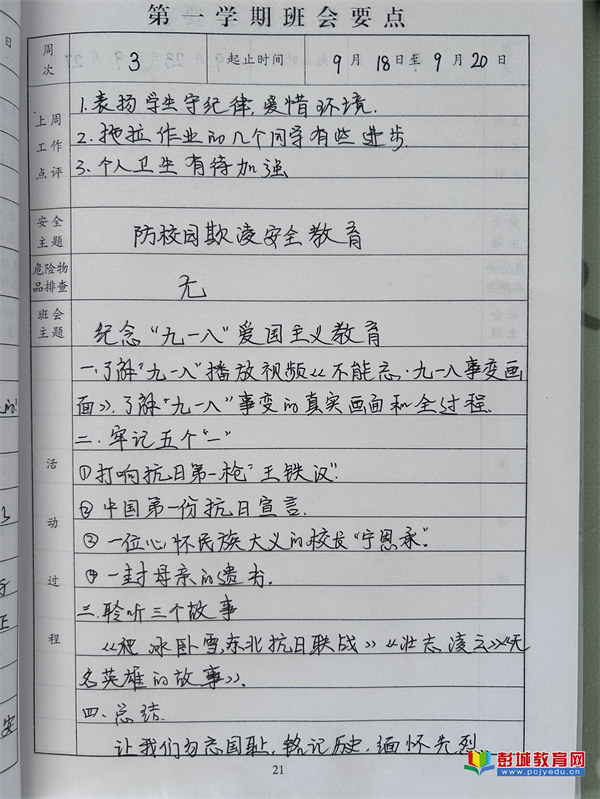 第一学期班会要点
周次 3 起止时间 9月18日至9月20日
上周工作点评
1.表扬学生守纪律,爱惜环境.
2.拖拉作业的几个同学有些进步.
3.个人卫生有待加强
安全主题 防校园欺凌安全教育
危险物品排查 无
班会主题 纪念“九一八”爱国主义教育
活动过程
一.了解“九一八”播放视频《不能忘·九一八事变画
面》.了解“九一八”事变的真实画面和全过程.
二.牢记五个“一”
①打响抗日第一枪“王铁汉”.
②中国第一份抗日宣言.
③一位心怀民族大义的校长“宁恩承”.
④一封母亲的遗书.
三.聆听三个故事
《爬冰卧雪东北抗日联战》《壮志凌云》《无
名英雄的故事》.
四.总结.
让我们勿忘国耻,铭记历史,缅怀先烈
21
彭城教育网
www.pcjyedu.cn